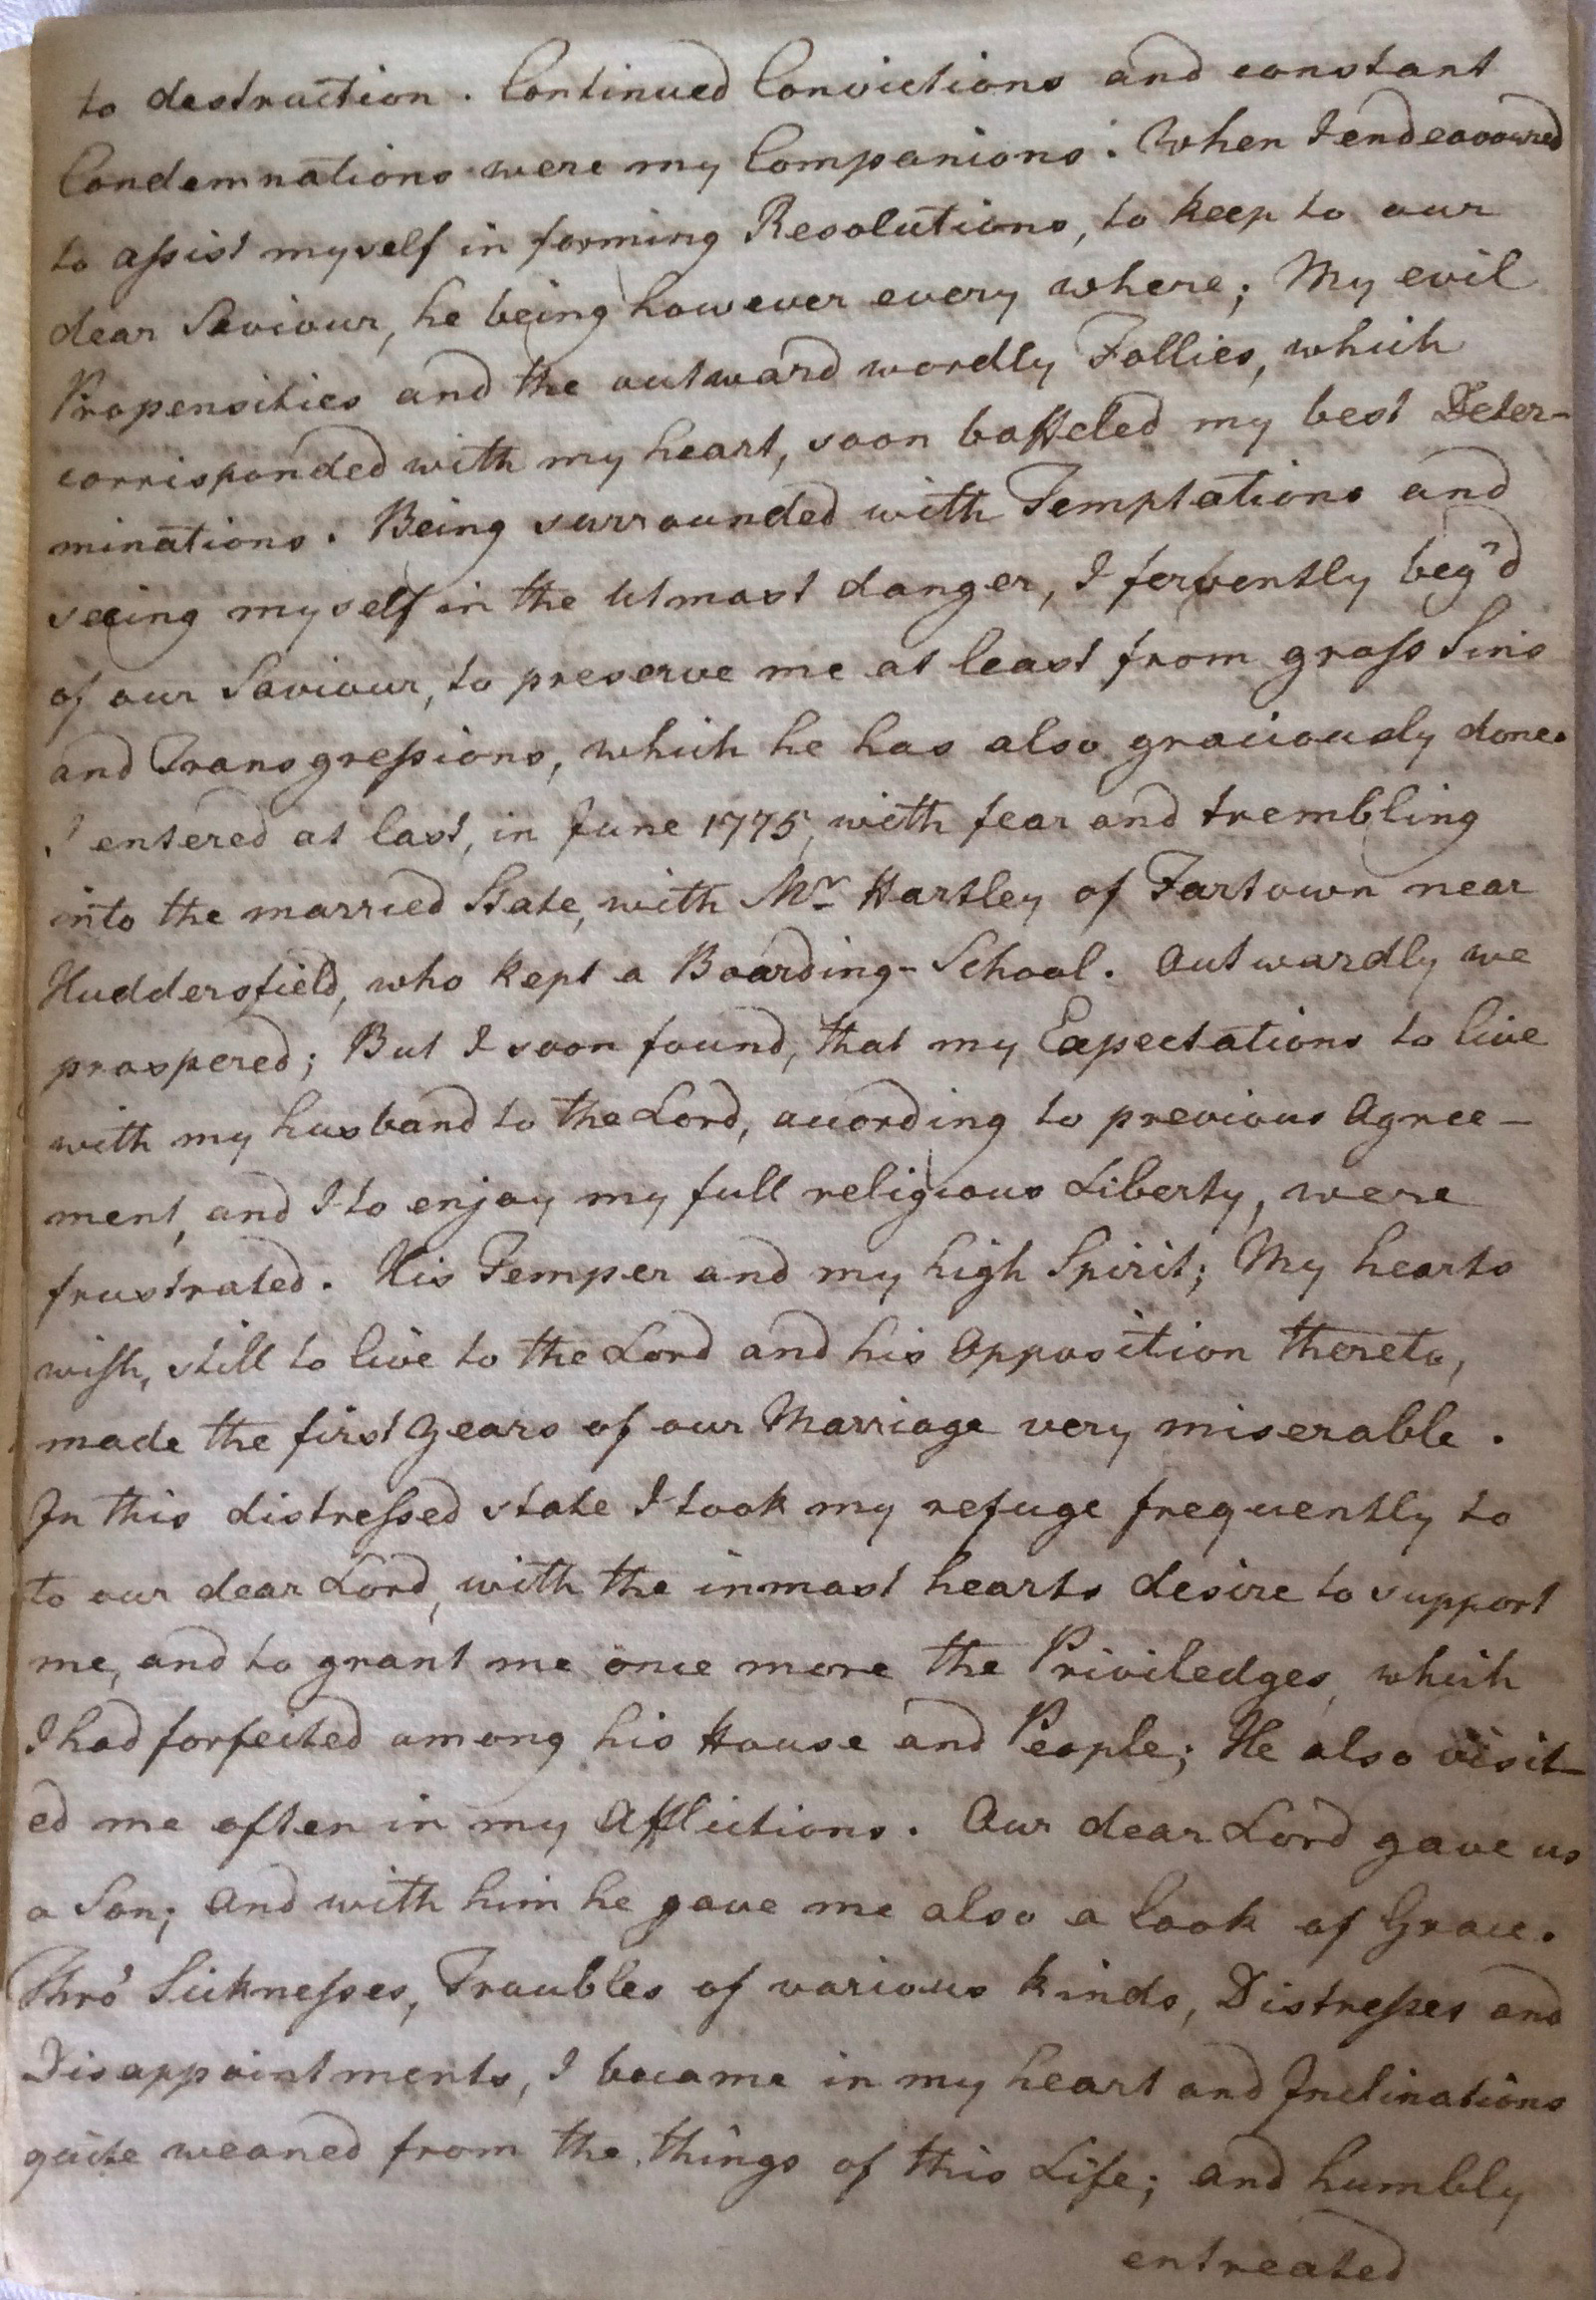 to destruction. Continued Convictions and constant
Condemnations were my Companions. When I endeavoured
to assist myself in forming Resolutions, to keep to our
dear Saviour, he being however every where; My evil
Propensities and the outward wordly Follies, which
corrisponded with my heart, soon baffeled my best Deter-
minations. Being surrounded with Temptations and
seeing myself in the Utmost danger, I fervently beg'd
of our Saviour, to preserve me at least from gross Sins
and Transgressions, which he has also graciously done.
I entered at last, in June 1775, with fear and trembling
into the married State, with Mr Hartley of Fartown near
Huddersfield, who kept a Boarding-School. Outwardly we
prospered; But I soon found, that my Expectations to live
with my husband to the Lord, according to previous Agree-
ment, and I to enjoy my full religious Liberty, were
frustrated. His Temper and my high Spirit; My hearts
wish, still to live to the Lord and his Opposition thereto,
made the first Years of our Marriage very miserable.
In this distressed state I took my refuge frequently to
to our dear Lord, with the inmost hearts desire to support
me, and to grant me once more the Priviledges, which
I had forfeited among his House and People; He also visit-
ed me often in my Afflictions. Our dear Lord gave us
a Son; And with him he gave me also a look of Grace.
Thro' Sicknesses, Troubles of various kinds, Distresses and
Disappointments, I became in my heart and Inclinations
quite weaned from the things of this Life; and humbly
entreated